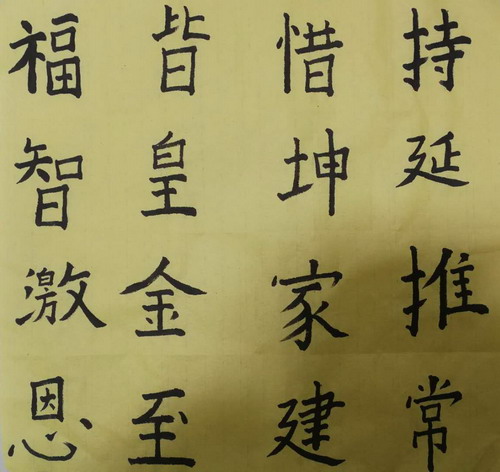 持延推常
惜坤家建
皆皇金至
福智激恩